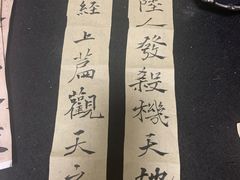 陸人發殺機天地
經上篇觀天之